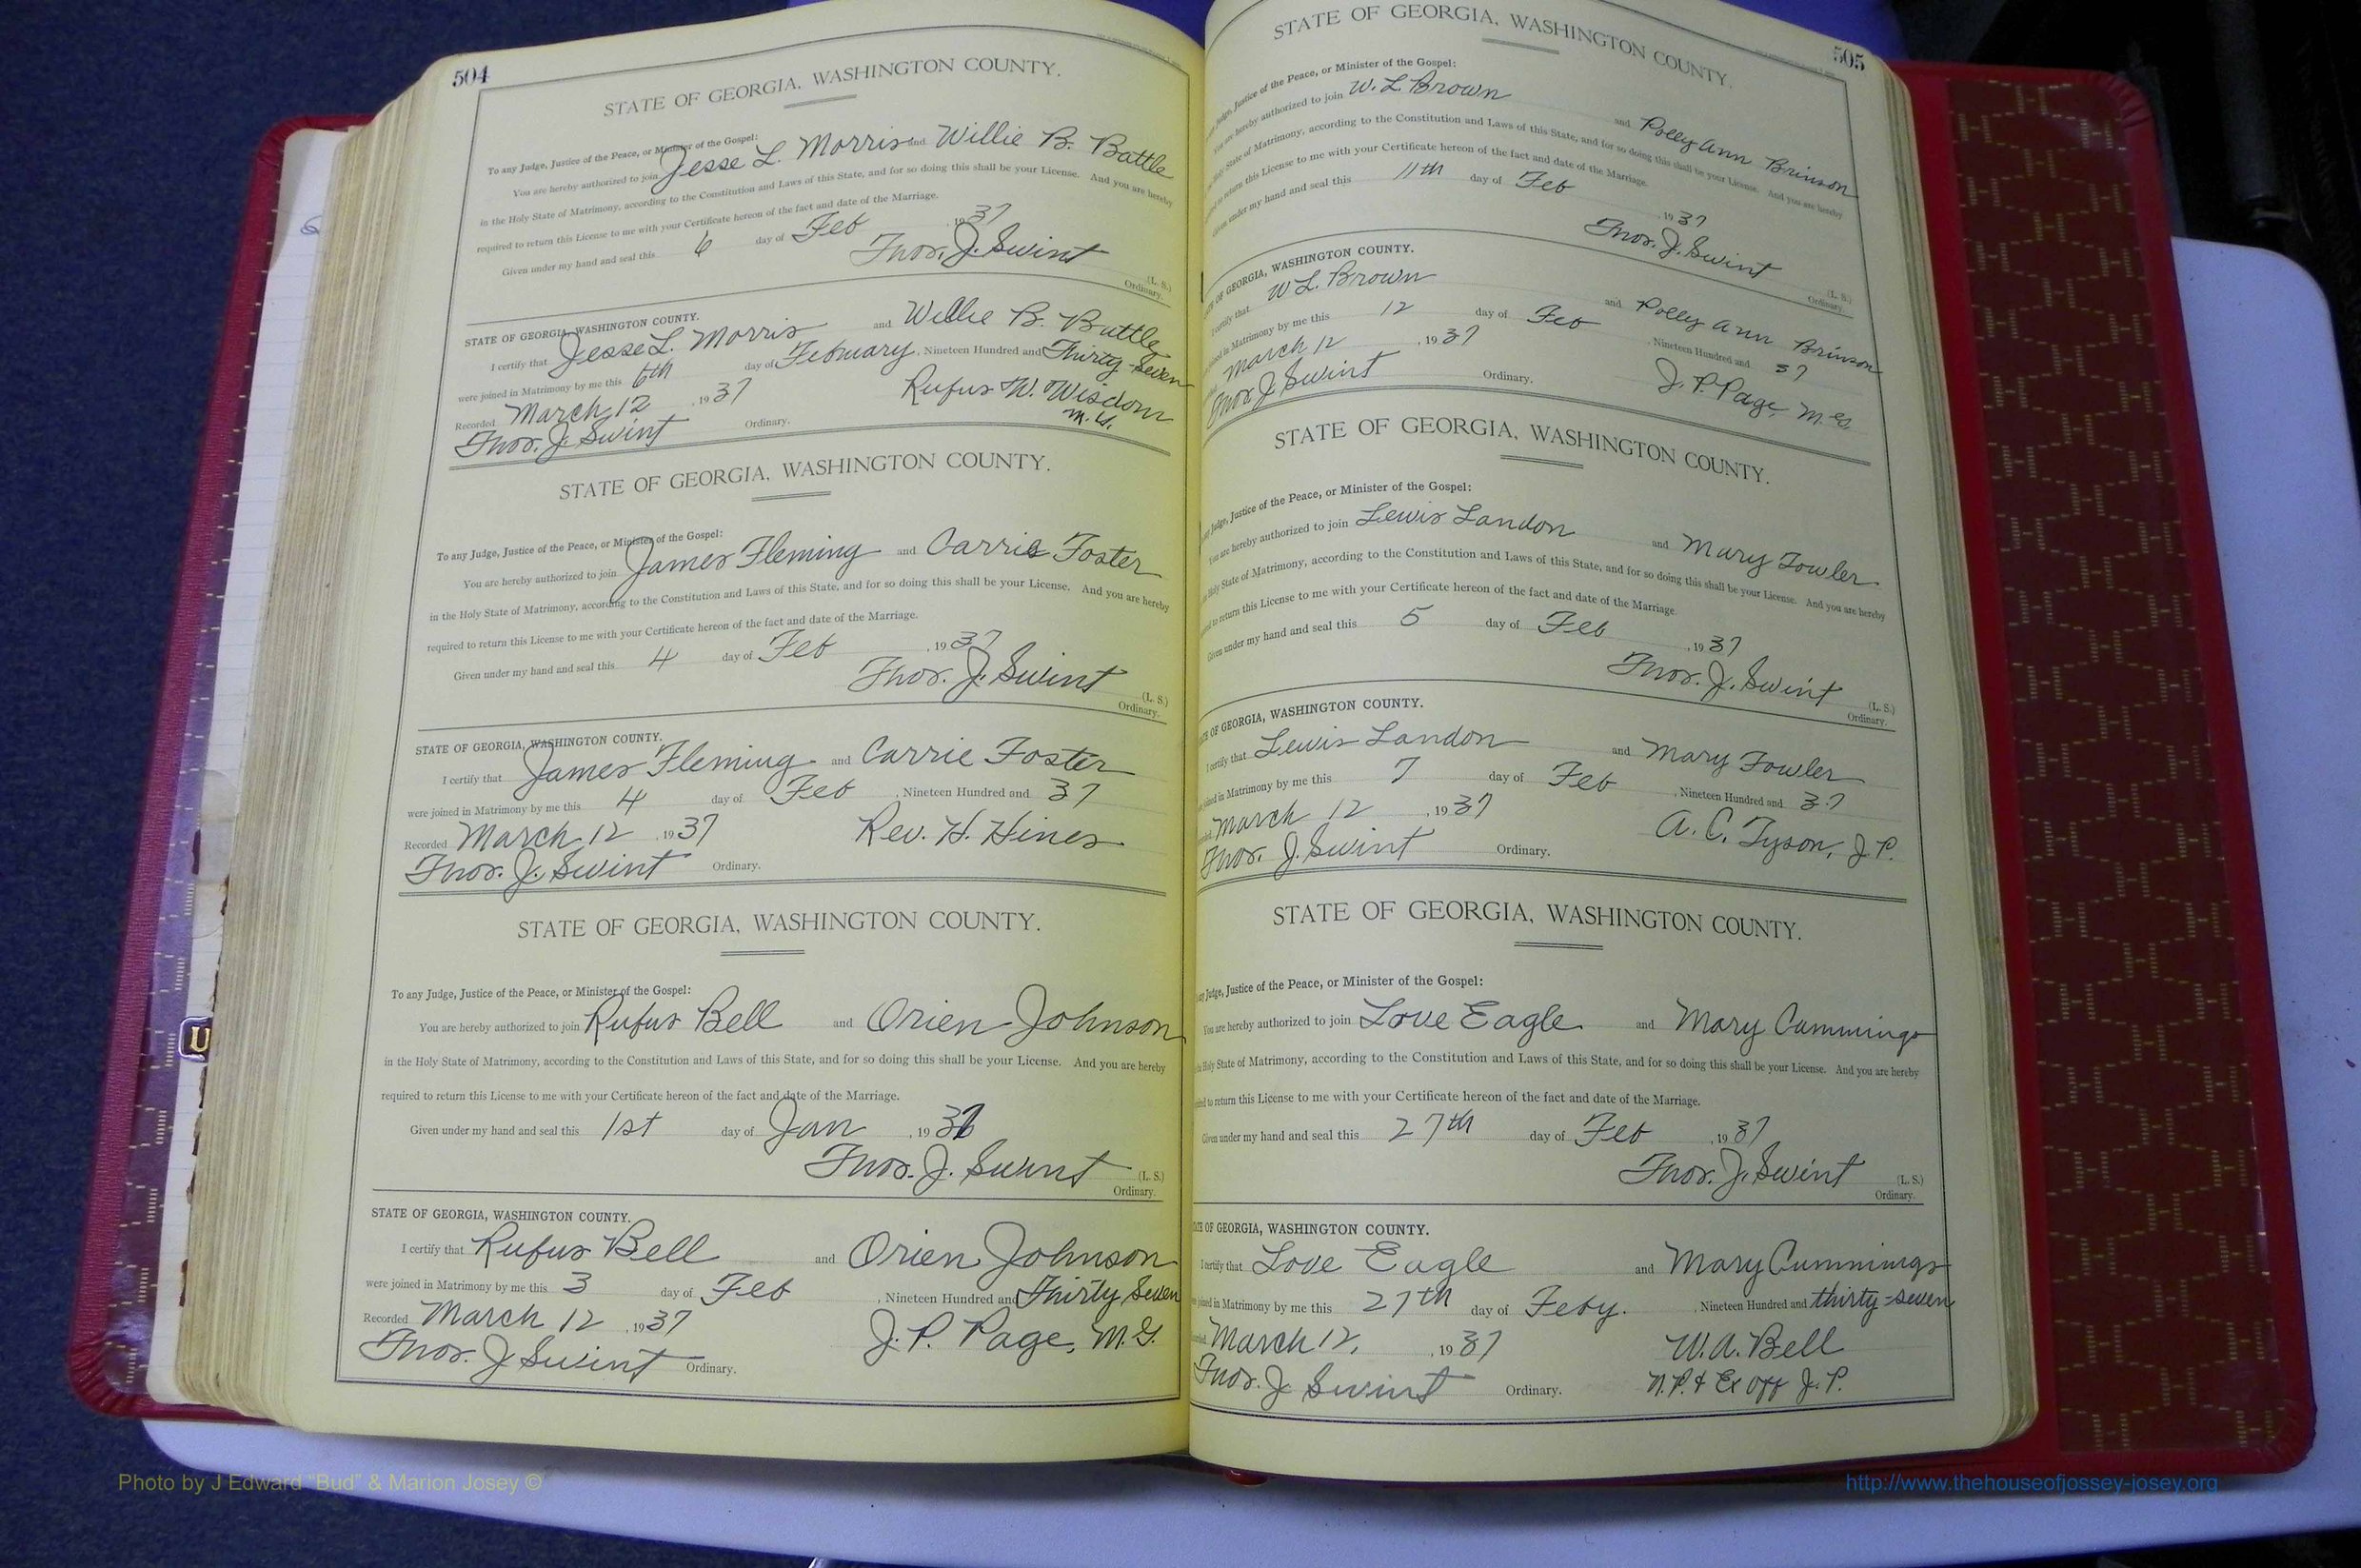 504
STATE OF GEORGIA, WASHINGTON COUNTY.
To any Judge, Justice of the Peace, or Minister of the Gospel:
You are hereby authorized to join Jesse L. Morris and Willie B. Battle
in the Holy State of Matrimony, according to the Constitution and Laws of this State, and for so doing this shall be your License. And you are hereby
required to return this License to me with your Certificate hereon of the fact and date of the Marriage.
Given under my hand and seal this 6 day of Feb , 1937
Thos. J. Swint (L. S.)
Ordinary.
STATE OF GEORGIA, WASHINGTON COUNTY.
I certify that Jesse L. Morris and Willie B. Battle
were joined in Matrimony by me this 6th day of February, Nineteen Hundred and Thirty-Seven
Recorded March 12 , 1937 Rufus W. Wisdom
Thos. J. Swint Ordinary. M.G.
STATE OF GEORGIA, WASHINGTON COUNTY.
To any Judge, Justice of the Peace, or Minister of the Gospel:
You are hereby authorized to join James Fleming and Carrie Foster
in the Holy State of Matrimony, according to the Constitution and Laws of this State, and for so doing this shall be your License. And you are hereby
required to return this License to me with your Certificate hereon of the fact and date of the Marriage.
Given under my hand and seal this 4 day of Feb , 1937
Thos. J. Swint (L. S.)
Ordinary.
STATE OF GEORGIA, WASHINGTON COUNTY.
I certify that James Fleming and Carrie Foster
were joined in Matrimony by me this 4 day of Feb , Nineteen Hundred and 37
Recorded March 12 , 1937 Rev. H. Hines
Thos. J. Swint Ordinary.
STATE OF GEORGIA, WASHINGTON COUNTY.
To any Judge, Justice of the Peace, or Minister of the Gospel:
You are hereby authorized to join Rufus Bell and Orien Johnson
in the Holy State of Matrimony, according to the Constitution and Laws of this State, and for so doing this shall be your License. And you are hereby
required to return this License to me with your Certificate hereon of the fact and date of the Marriage.
Given under my hand and seal this 1st day of Jan , 1937
Thos. J. Swint (L. S.)
Ordinary.
STATE OF GEORGIA, WASHINGTON COUNTY.
I certify that Rufus Bell and Orien Johnson
were joined in Matrimony by me this 3 day of Feb , Nineteen Hundred and Thirty Seven
Recorded March 12 , 1937 J. P. Page, M.G.
Thos. J. Swint Ordinary.
505
STATE OF GEORGIA, WASHINGTON COUNTY.
Judge, Justice of the Peace, or Minister of the Gospel:
You are hereby authorized to join W. L. Brown and Polly Ann Brinson
Holy State of Matrimony, according to the Constitution and Laws of this State, and for so doing this shall be your License. And you are hereby
return this License to me with your Certificate hereon of the fact and date of the Marriage.
Given under my hand and seal this 11th day of Feb , 1937
Thos. J. Swint (L. S.)
Ordinary.
OF GEORGIA, WASHINGTON COUNTY.
I certify that W L. Brown and Polly Ann Brinson
joined in Matrimony by me this 12 day of Feb , Nineteen Hundred and 37
March 12 , 1937 J. P. Page M.G.
Thos J. Swint Ordinary.
STATE OF GEORGIA, WASHINGTON COUNTY.
Judge, Justice of the Peace, or Minister of the Gospel:
You are hereby authorized to join Lewis Landon and Mary Fowler
Holy State of Matrimony, according to the Constitution and Laws of this State, and for so doing this shall be your License. And you are hereby
return this License to me with your Certificate hereon of the fact and date of the Marriage.
Given under my hand and seal this 5 day of Feb , 1937
Thos. J. Swint (L. S.)
Ordinary.
OF GEORGIA, WASHINGTON COUNTY.
I certify that Lewis Landon and Mary Fowler
joined in Matrimony by me this 7 day of Feb , Nineteen Hundred and 37
March 12 , 1937 A. C. Tyson, J P.
Thos. J. Swint Ordinary.
STATE OF GEORGIA, WASHINGTON COUNTY.
Judge, Justice of the Peace, or Minister of the Gospel:
You are hereby authorized to join Love Eagle and Mary Cummings
Holy State of Matrimony, according to the Constitution and Laws of this State, and for so doing this shall be your License. And you are hereby
to return this License to me with your Certificate hereon of the fact and date of the Marriage.
Given under my hand and seal this 27th day of Feb , 1937
Thos. J. Swint (L. S.)
Ordinary.
OF GEORGIA, WASHINGTON COUNTY.
I certify that Love Eagle and Mary Cummings
joined in Matrimony by me this 27th day of Feby. , Nineteen Hundred and thirty-seven
March 12, , 1937 W. A. Bell
Thos. J Swint Ordinary. N.P. & Ex off J. P.
U
Photo by J Edward "Bud" & Marion Josey ©
http://www.thehouseofjossey-josey.org